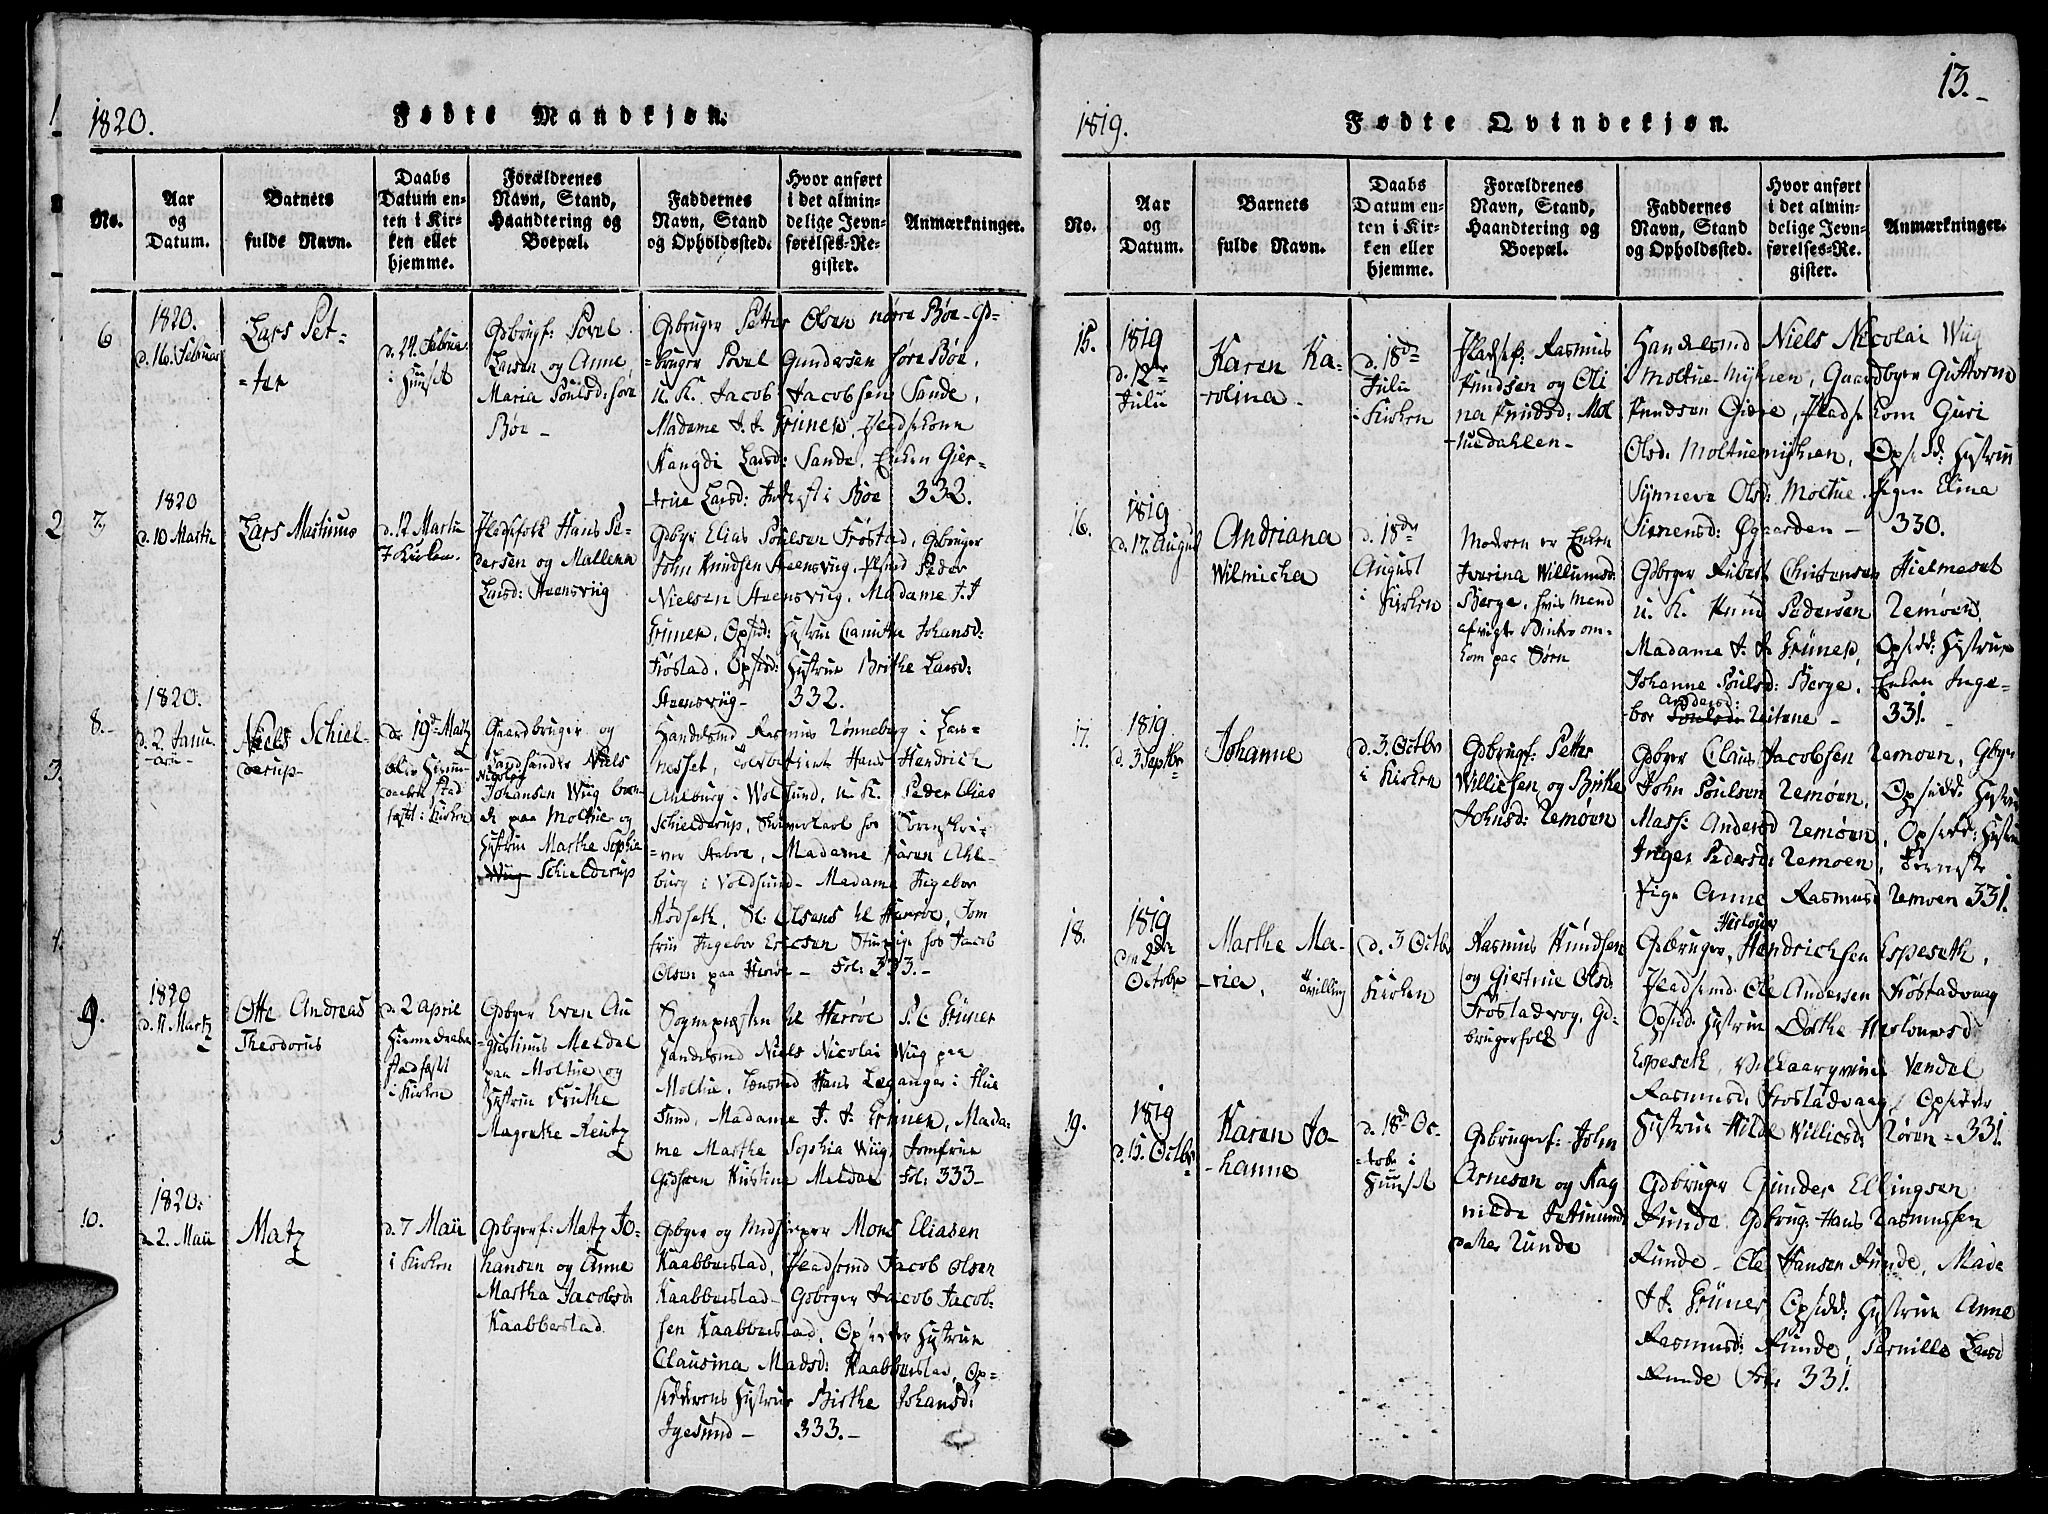 1820.
Fødte Mandkjøn.
No.
Aar
og
Datum.
Barnets
fulde Navn.
Daabs
Datum en-
ten i Kir-
ken eller
hjemme.
Forældrenes
Navn, Stand,
Haandtering og
Boepæl.
Faddernes
Navn, Stand
og Opholdssted.
Hvor anført
i det almin-
delige Jevn-
førelses-Re-
gister.
Anmærkninger.
6
1820.
d. 16. Februar
Lars Pet-
-ter
d. 24. Februa:
i Huuset
Gdbrugf: Povel
Larsen og Anne
Maria Poulsd: søre
Bøe -
Gdbruger Petter Olsen nørre Bøe - Gd-
-bruger Povel Gundersen søre Bøe,
u. K. Jacob Jacobsen Sande,
Madame J. J. Grüner, Pladsekone
Rangdi Larsd: Sande, Enken Gier-
true Larsd: Inderst i Bøe 332.
7
1820
d. 10 Martii
Lars Martinus
d. 12 Martii
i Kirken.
Pladsefolk Hans Pe-
dersen og Mallena
Larsd: Steensviig
Gdbyr Elias Poulsen Frøstad, Gdbruger
John Knudsen Steensviig, Plsmd Peder
Nielsen Steensviig, Madame J. J
Grüner, Opsid: Hustrue Johansd:
Frøstad, Opsid: Hustrue Birthe Larsd:
Steensviig - 332.
8.
1820.
d. 2. Janu-
arii -
Niels Schiel-
derup -
d. 19de Martz
blev Hiemme
daaben stad
fæstet i Kirken
Gaardbruger og
Landhandler Niels
Nicolay
Johansen Wiig boen-
de paa Moltue og
Hustrue Marthe Sophie
Wiig Schielderup
Handelsmd Rasmus Rønneberg i Lars-
nesset, Tolbetient Hans Hendrich
Ahlburg i Wolsund, u. K. Peder Elias
Schielderup, Skriverkarl hos Sorenskri-
-ver Madame Karen Ahl-
burg i Voldsund - Madame Ingebor
Rødseth, Sl: Olsens til Herrøe, Jom
fru Ingebor Ericsen Stuepige hos Jacob
Olsen paa Herrøe - Fol: 333. -
9.
1820
d. 11. Martz
Otte Andreas
Theodorus
d. 2 April
Hiemmedaaben
stadfæst
i Kirken
Gdbger Even Au
-gustinus Meldal
paa Moltue og
Hustrue Grethe
Magrethe Reutz
Sognepræsten til Herrøe P. C. Grüner
Handelsmd Niels Nicolai Wiig paa
Moltue, Lensmd Hans Leganger i Flue
sund, Madame J. J. Grüner, Mada-
me Marthe Sophia Wiig, Jomfrue
Gidsken Kirstine Meldal Fol: 333 -
10.
1820.
d. 2. Maii
Matz
d. 7 Maii
i Kirken
Gdbgerf: Matz Jo-
hansen og Anne
Martha Jacobsd:
Kaabberstad.
Gdbger og Medhielper Mons Eliasen
Kaabberstad, Pladsemd Jacob Olsen
Kaabberstad - Gdbrger Jacob Jacob-
sen Kaabberstad, Opsidder Hustrue
Clausina Madsd: Kaabberstad, Op-
sidderens Hustrue Birthe Johansd:
Igesund - 333. -
13. -
1819.
Fødte Qvindekjøn.
No.
Aar
og
Datum.
Barnets
fulde Navn.
Daabs
Datum en-
ten i Kir-
ken eller
hjemme.
Forældrenes
Navn, Stand,
Haandtering og
Boepæl.
Faddernes
Navn, Stand
og Opholdssted.
Hvor anført
i det almin-
delige Jevn-
førelses-Re-
gister.
Anmærkninger.
15.
1819
d. 12te
Julii
Karen Ka-
-rolina -
d. 18de
Julii
i Kirken
Pladsef: Rasmus
Knudsen og Oli
na Knudsd: Mol
-tuedahlen -
Handelsmd Niels Nicolai Wiig
i Moltue Myhren, Gaardbger Guttorm
Knudsen Pladsekone Guri
Olsd. Moltuemyhren, Opsidd: Hustrue
Synneva Olsd: Moltue, Pigen Elina
Simensd: Øgaarden - 330.
16.
1819
d. 17. August
Andriana
Wilmicha
d. 18de
August
i Kirken
Moderen er Enken
Iverina Willumsd:
Berge, hvis Mand
afvigte Vinter om-
kom paa Søen
Gdbrger Rubert Christensen Hielmeset
u. K. Knud Pedersen Remøen,
Madame J. J. Grüner, Opsidd: Hustrue
Johanne Poulsd: Berge, Enken Inge-
Andersd:
-bor Poulsd: Reitene - 331. -
17.
1819
d. 3 Septbr
Johanne
d. 3. Octbr
i Kirken
Gdbrugf: Petter
Willichsen og Birthe
Johnsd: Remøen
Gdbger Claus Jacobsen Remøen, Gdbyr
John Poulsen Remøen, Opsidd: Hustrue
Massi Andersd Remøen, Opsidd: Hustrue
Inger Pedersd: Remøen, Tieneste
Pige Anne Rasmusd Remøen 331.
18.
1819
den 2de
Octobr
Marthe Ma-
-ria, Tvilling
d. 3 Octbr
i
Kirken
Rasmus Knudsen
og Giertrue Olsd
Frøstadvog, Gd-
brugerfolk
Herlouer
Gdbruger Hendrichsen Espeseth,
Pladsemd. Ole Andersen Frøstadvaag
Opsid: Hustrue Dorthe Herlouersd
Espeseth, Vilkaarqvinde Vendel
Rasmusd: Frostadvaag, Opsidder
Hustrue Hilde Willicsd: Røren - 331.
19.
1819
d. 15. Octbr
Karen Jo-
-hanne
d. 18de Oc-
-tobr i
Huuset
Gdbrugerf: John
Arnesen og Rag
nilde
Runde
Gdbruger Gunder Ellingsen
Runde, Gdbrug: Hans Rasmussen
Runde - Ole Hansen Runde, Made
J. J. Grüner, Opsidd: Hustrue Anne
Rasmusd: Runde, Pernille Larsd
Runde 331.